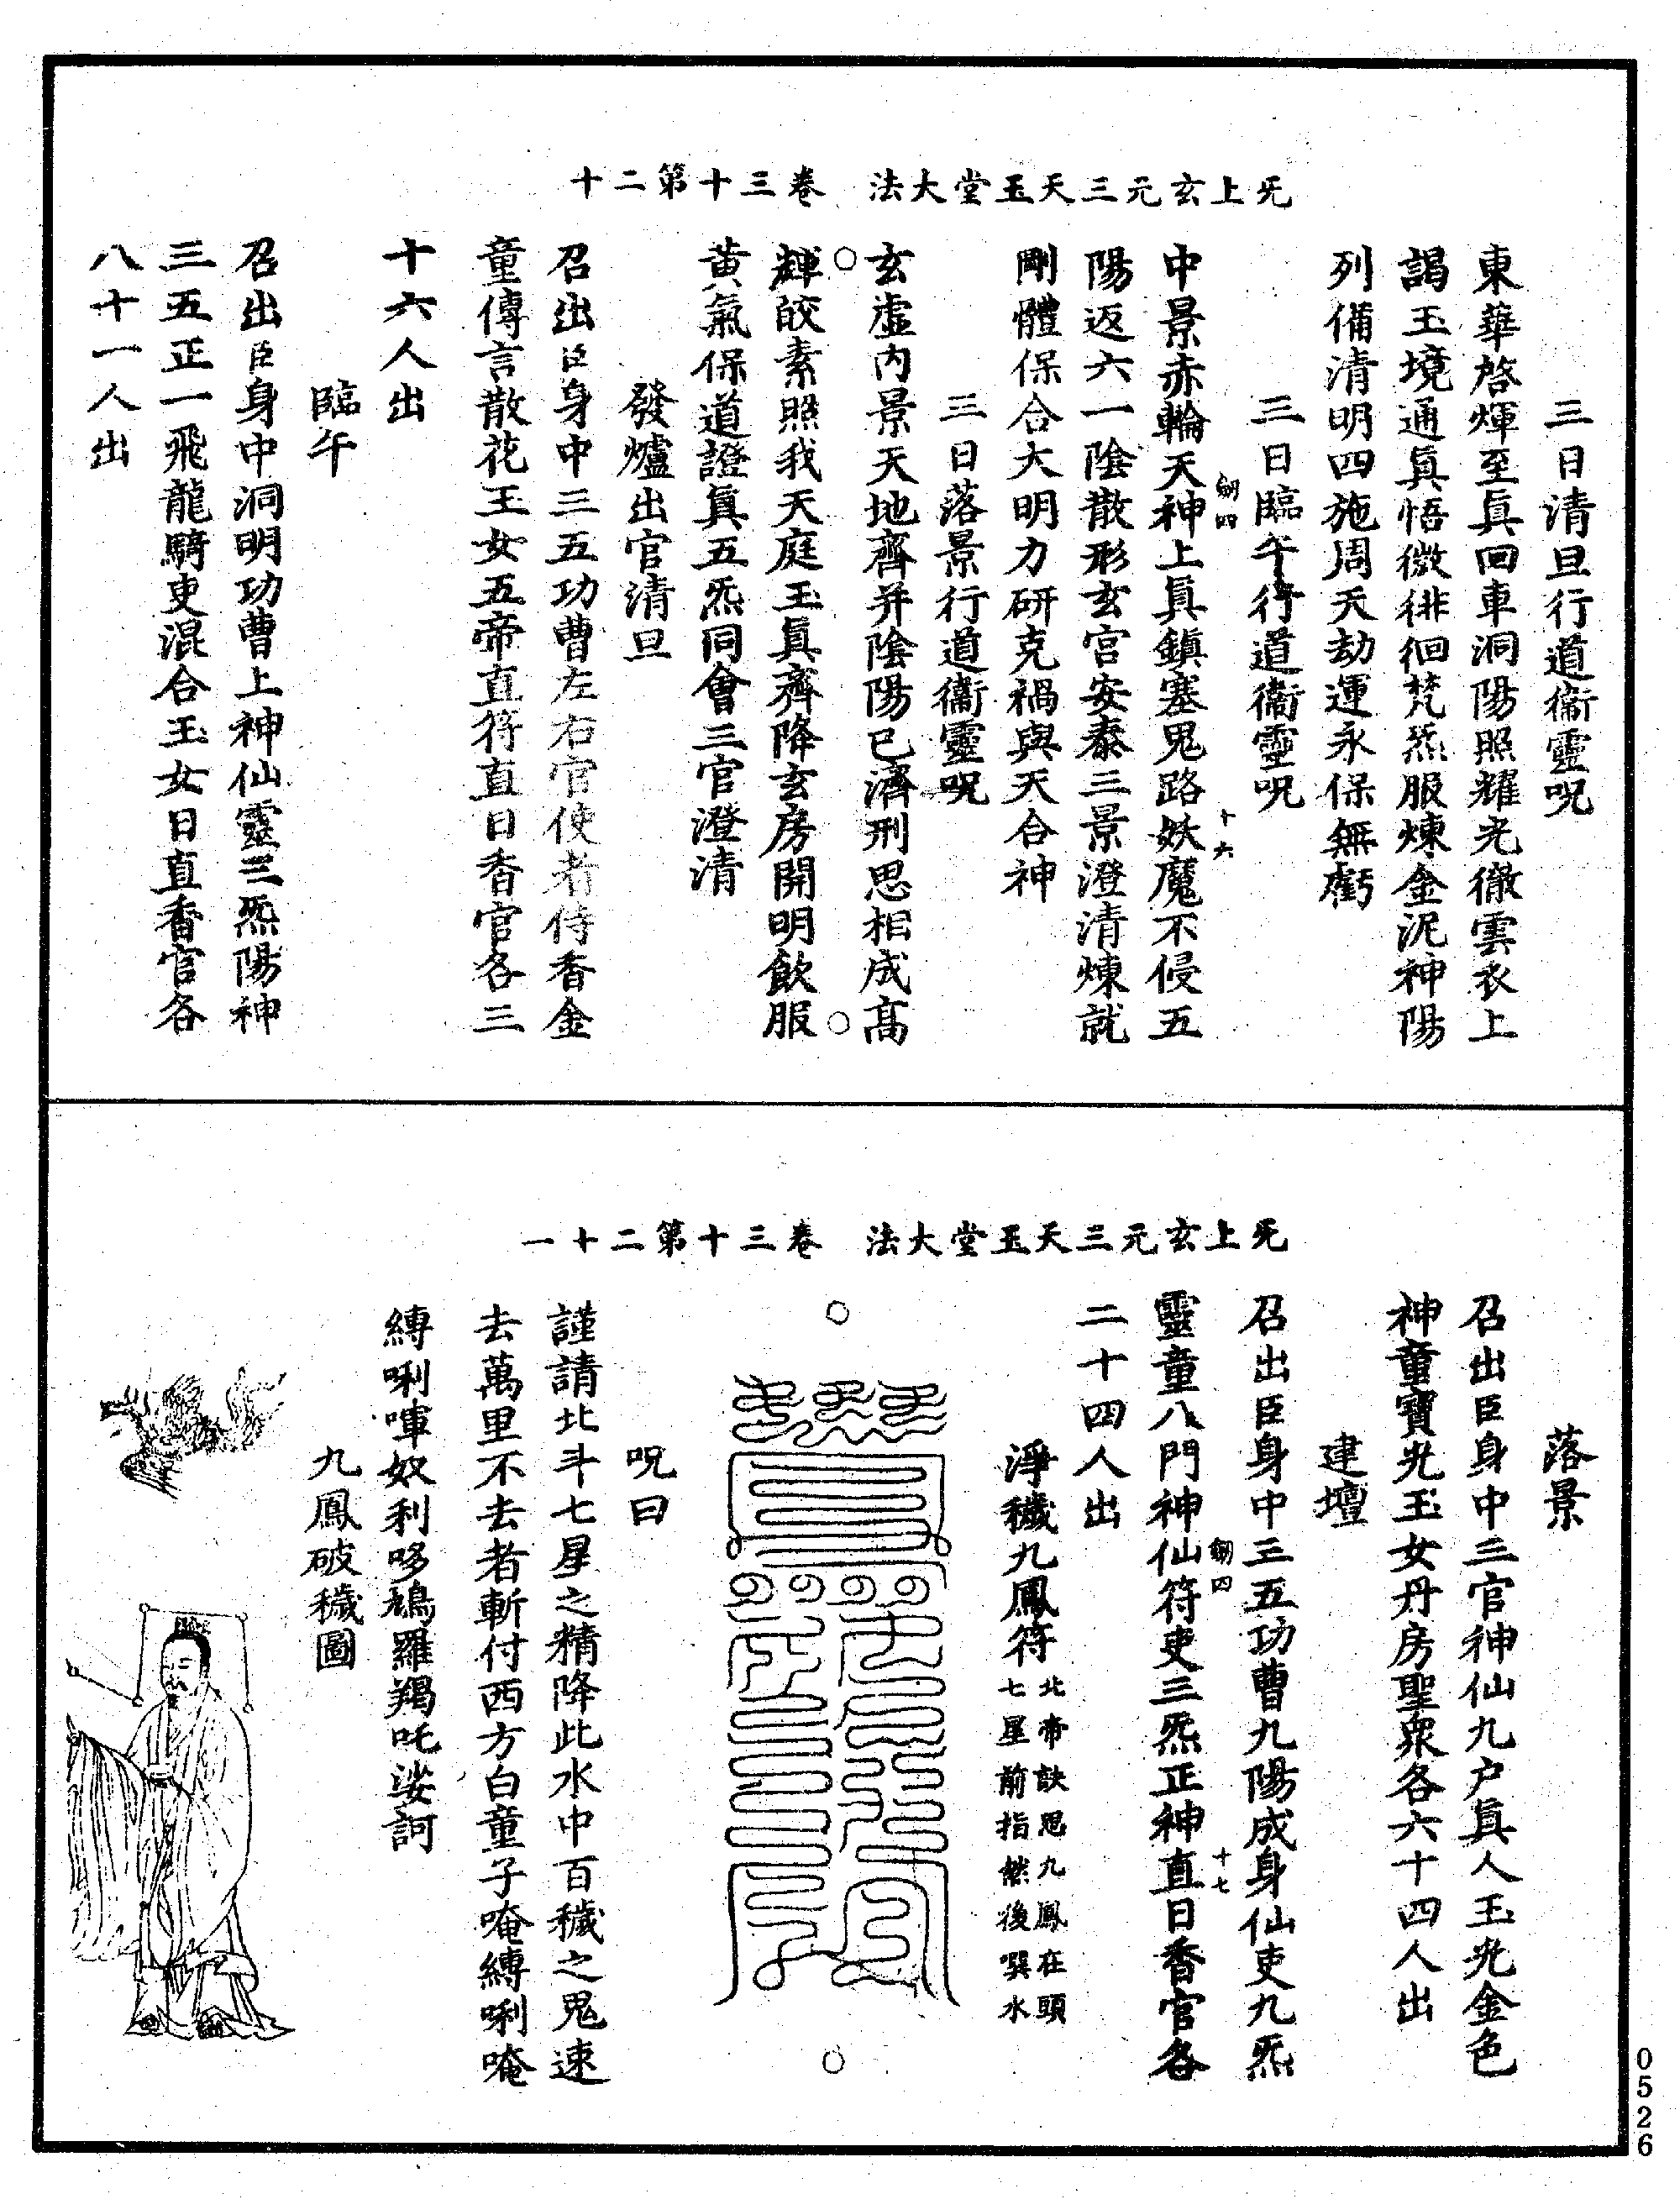 无上玄元三天玉堂大法　卷三十第二十
三日清旦行道衞靈呪
東華啓煇至眞回車洞陽照耀光徹雲衣上
謁玉境通眞悟微徘徊梵炁服煉金泥神陽
列備清明四施周天劫運永保無虧
三日臨午行道衞靈呪
劒四　十六
中景赤輪天神上眞鎮塞鬼路妖魔不侵五
陽返六一陰散形玄宮安泰三景澄清煉就
剛體保合大明力研克禍與天合神
三日落景行道衞靈呪
玄虛內景天地齊并陰陽已濟刑思相成高
輝皎素照我天庭玉眞齊降玄房開明飲服
黃氣保道證眞五炁同會三官澄清
發爐出官清旦
召出臣身中三五功曹左右官使者侍香金
童傳言散花玉女五帝直符直日香官各三
十六人出
臨午
召出臣身中洞明功曹上神仙靈三炁陽神
三五正一飛龍騎吏混合玉女日直香官各
八十一人出
无上玄元三天玉堂大法　卷三十第二十一
落景
召出臣身中三官神仙九户眞人玉光金色
神童寶光玉女丹房聖衆各六十四人出
建壇
召出臣身中三五功曹九陽成身仙吏九炁
劒四　十七
靈童八門神仙符吏三炁正神直日香官各
二十四人出
淨穢九鳳符北帝訣思九鳳在頭
七星前指然後噀水
呪曰
謹請北斗七星之精降此水中百穢之鬼速
去萬里不去者斬付西方白童子唵縛唎唵
縛唎啍奴利哆鵚羅羯吒娑訶
九鳳破穢圖
0526